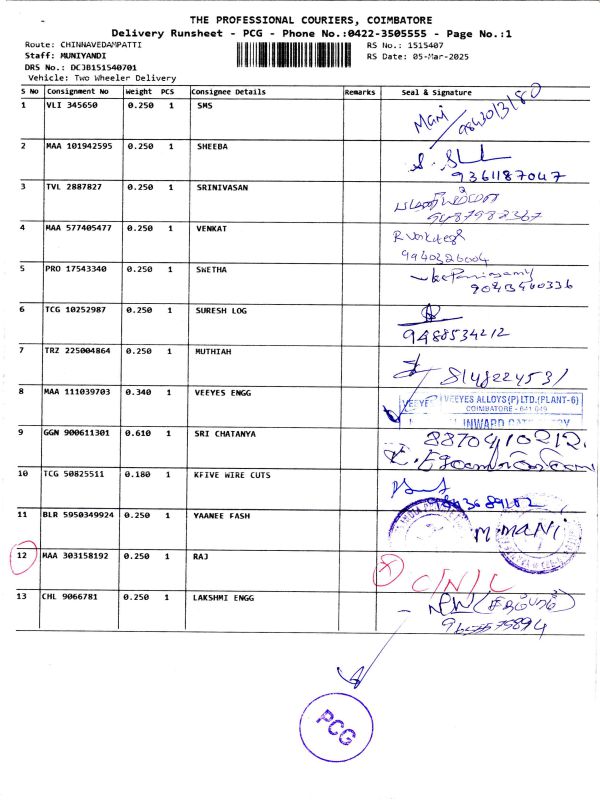 THE PROFESSIONAL COURIERS, COIMBATORE
Delivery Runsheet - PCG - Phone No.:0422-3505555 - Page No.:1
Route: CHINNAVEDAMPATTI RS No.: 1515407
Staff: MUNIYANDI RS Date: 05-Mar-2025
DRS No.: DCJB151540701
Vehicle: Two Wheeler Delivery
S No Consignment No Weight PCS Consignee Details Remarks Seal & Signature
1 VLI 345650 0.250 1 SMS Mani
2 MAA 101942595 0.250 1 SHEEBA
9361187047
3 TVL 2887827 0.250 1 SRINIVASAN
9487982367
4 MAA 577405477 0.250 1 VENKAT
9940326004
5 PRO 17543340 0.250 1 SWETHA
6 TCG 10252987 0.250 1 SURESH LOG
9488534212
7 TRZ 225004864 0.250 1 MUTHIAH
8148224531
8 MAA 111039703 0.340 1 VEEYES ENGG VEEYES VEEYES ALLOYS(P)LTD.(PLANT-6)
COIMBATORE - 641 049
INWARD
9 GGN 900611301 0.610 1 SRI CHATANYA 8870410212
10 TCG 50825511 0.180 1 KFIVE WIRE CUTS
11 BLR 5950349924 0.250 1 YAANEE FASH M.MANI
12 MAA 303158192 0.250 1 RAJ
C/N/L
13 CHL 9066781 0.250 1 LAKSHMI ENGG
PCG